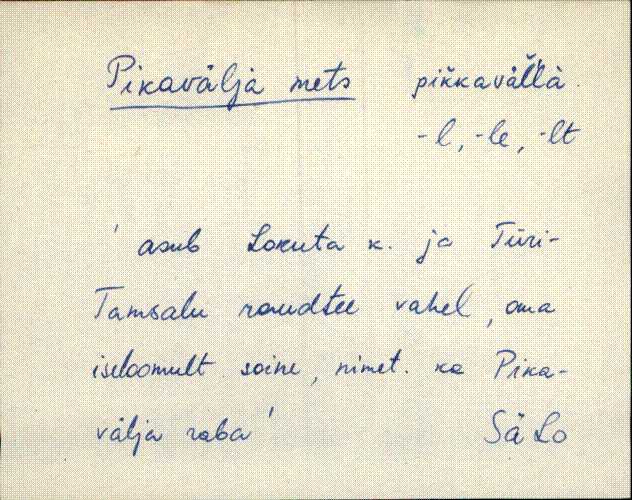 Pikavälja mets pikkaväĺĺä
-l, -le, -lt
' asub Lokuta k. ja Türi-
Tamsalu raudtee vahel, oma
iseloomult soine, nimet. ka Pika-
välja raba'
Sä Lo